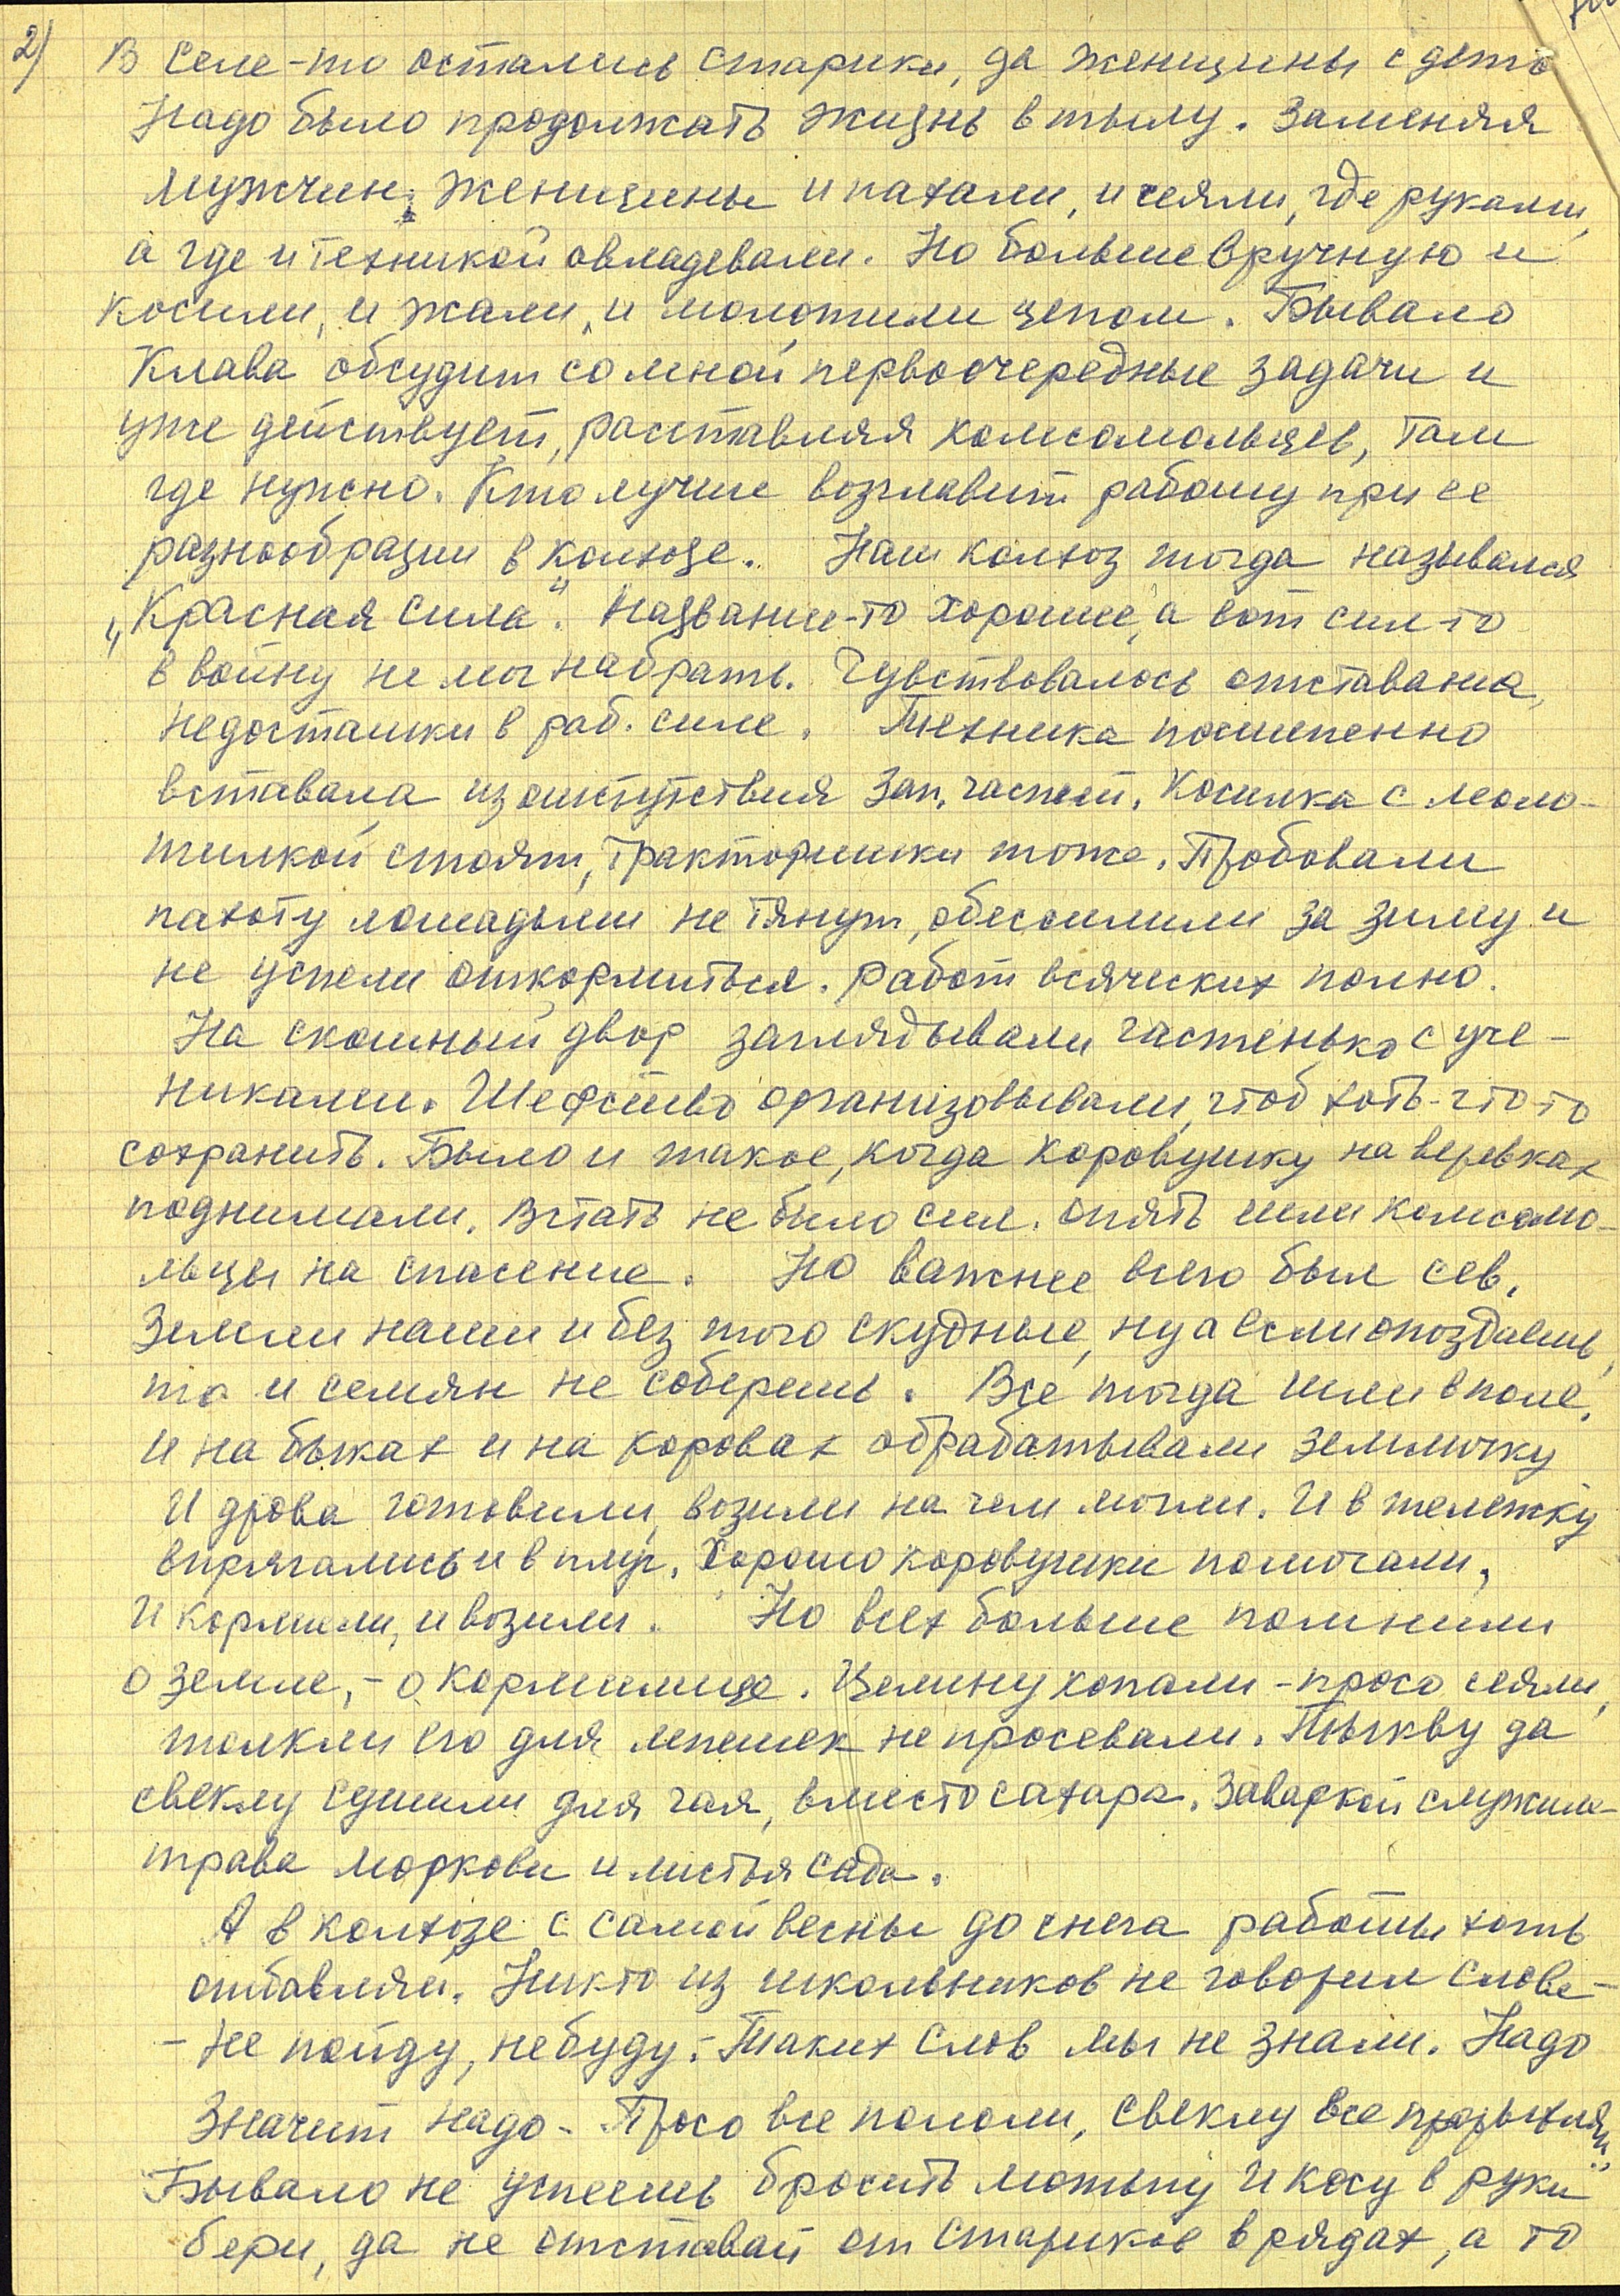 2)
В селе-то остались старики, да женщины с дето
Надо было продолжать жизнь в тылу. Заменяя
мужчин, женщины и пахали, и сеяли, где руками,
а где и техникой овладевали. Но больше вручную и
косили, и жали, и молотили цепом. Бывало
Клава обсудит со мной первоочередные задачи и
уже действует, расставляя комсомольцев, там
где нужно. Кто лучше возглавит работу при ее
разнообразии в колхозе. Наш колхоз тогда назывался
„Красная сила". Название-то хорошее, а вот сил-то
в войну не мог набрать. Чувствовалось отставание,
недостатки в раб. силе. Техника постепенно
вставала из отсутствия зап. частей. Косилка с моло-
тилкой стоят, тракторишки тоже. Пробовали
пахоту лошадьми не тянут, обессилили за зиму и
не успели откормиться. Работ всяческих полно.
На скотный двор заглядывали частенько с уче-
никами. Шефство организовывали, чтоб хоть-что-то
сохранить. Было и такое, когда коровушку на веревках
поднимали. Встать не было сил. Опять шли комсомо-
льцы на спасение. Но важнее всего был сев.
Земли наши и без того скудные, ну а если опоздаешь,
то и семян не соберешь. Все тогда шли в поле,
и на быках и на коровах обрабатывали землючку
И дрова готовили, возили на чем могли. И в тележку
впрягались и в плуг. Хорошо коровушки помогали,
и кормили, и возили. Но всех больше помнили
о земле, - о кормилице. Целину копали - просо сеяли,
толкли его для лепешек не просевали. Тыкву да
свеклу сушили для чая, вместо сахара. Заваркой служила
трава моркови и листья сада.
А в колхозе с самой весны до снега работы хоть
отбавляй. Никто из школьников не говорил слова-
- не пойду, не буду. - Таких слов мы не знали. Надо
значит надо - Просо все пололи, свеклу все прорыхляли
Бывало не успеешь бросить мотыгу и косу в руки
бери, да не отставай от стариков в рядах, а то